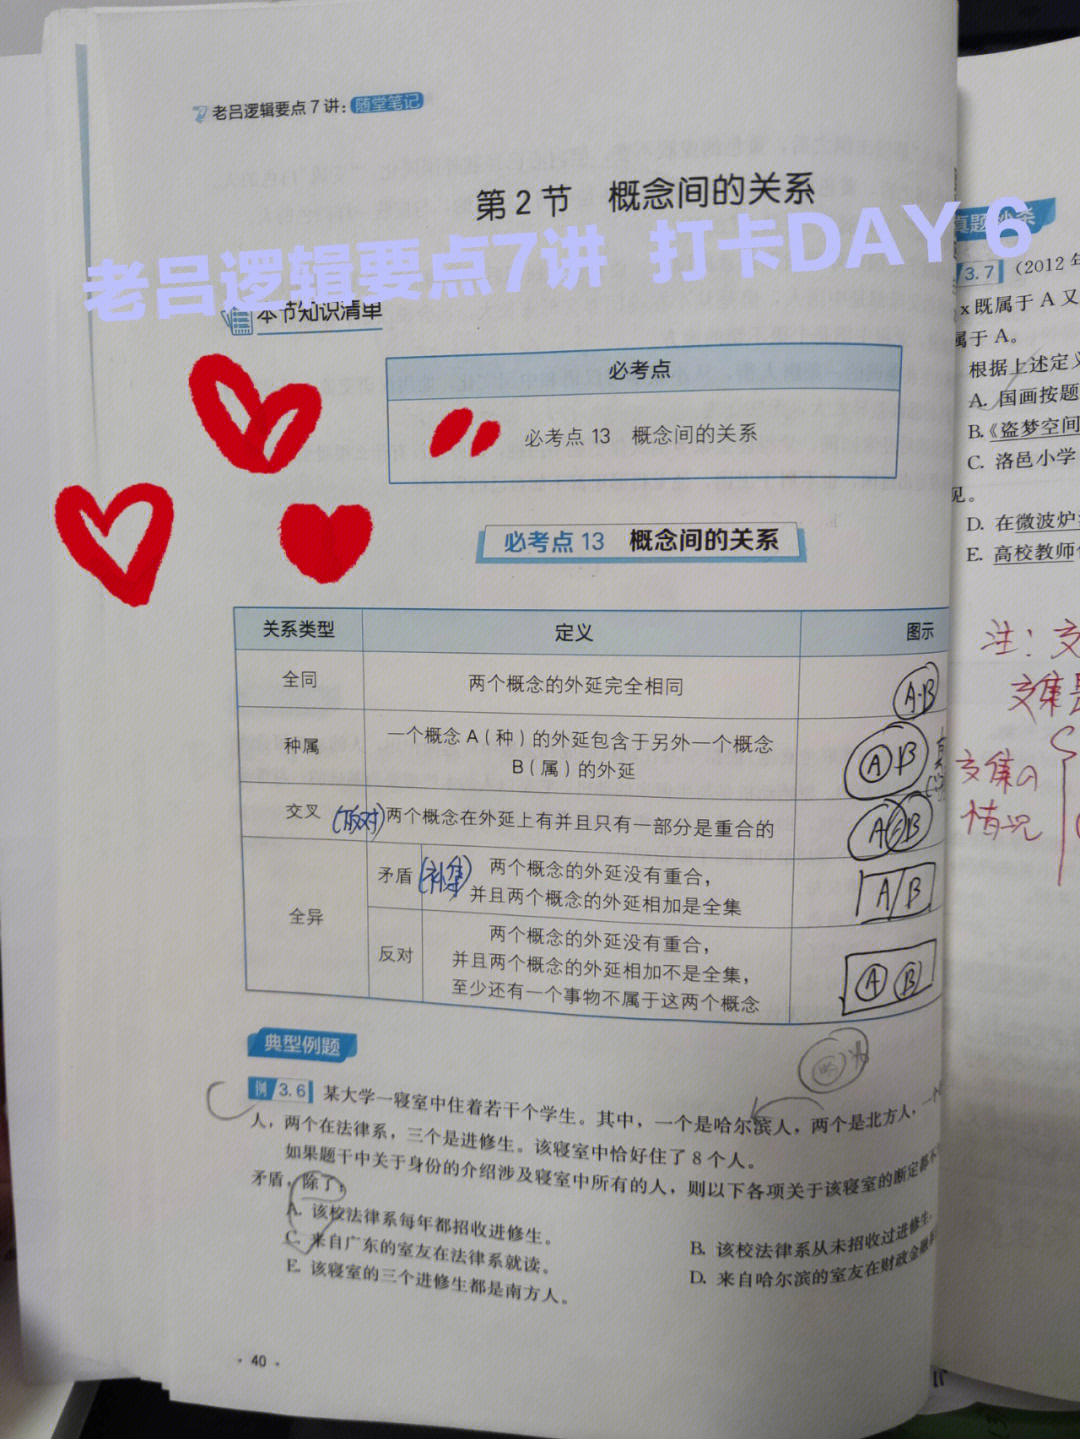 老吕逻辑要点7讲：随堂笔记
第2节 概念间的关系
老吕逻辑要点7讲 打卡DAY 6
本节知识清单
必考点
必考点13 概念间的关系
必考点13 概念间的关系
关系类型 定义 图示
全同 两个概念的外延完全相同 A·B
种属 一个概念A（种）的外延包含于另外一个概念
B（属）的外延 A B
交叉 (反对) 两个概念在外延上有并且只有一部分是重合的 A B
全异 矛盾 (补集) 两个概念的外延没有重合，
并且两个概念的外延相加是全集 A/B
反对 两个概念的外延没有重合，
并且两个概念的外延相加不是全集，
至少还有一个事物不属于这两个概念 A B
典型例题
例3.6 某大学一寝室中住着若干个学生。其中，一个是哈尔滨人，两个是北方人，一个
人，两个在法律系，三个是进修生。该寝室中恰好住了8个人。
如果题干中关于身份的介绍涉及寝室中所有的人，则以下各项关于该寝室的断定都不
矛盾，除了，
A. 该校法律系每年都招收进修生。
B. 该校法律系从未招收过进修生。
C. 来自广东的室友在法律系就读。
D. 来自哈尔滨的室友在财政金融
E. 该寝室的三个进修生都是南方人。
· 40 ·
真题秒杀
3.7 （2012年
x既属于A又
属于A。
根据上述定义
A. 国画按题
B.《盗梦空间
C. 洛邑小学
见。
D. 在微波炉
E. 高校教师
注：交
交集是
交集的
情况